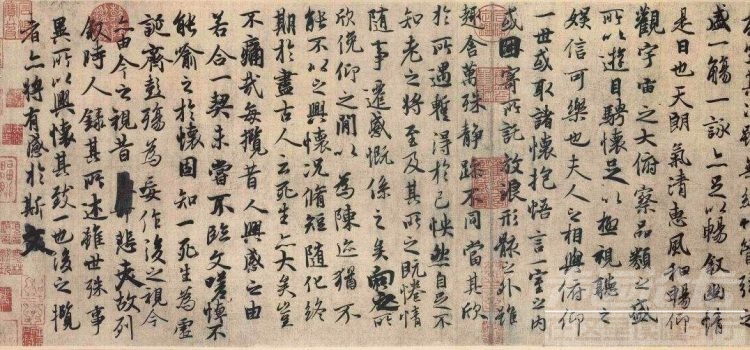 盛一觴一詠亦足以暢敘幽情
是日也天朗氣清惠風和暢仰
觀宇宙之大俯察品類之盛
所以遊目騁懷足以極視聽之
娛信可樂也夫人之相與俯仰
一世或取諸懷抱悟言一室之內
或因寄所託放浪形骸之外雖
趣舍萬殊靜躁不同當其欣
於所遇暫得於己怏然自足不
知老之將至及其所之既惓情
隨事遷感慨係之矣向之所
欣俛仰之間以為陳迹猶不
能不以之興懷況脩短隨化終
期於盡古人云死生亦大矣豈
不痛哉每攬昔人興感之由
若合一契未嘗不臨文嗟悼不
能喻之於懷固知一死生為虛
誕齊彭殤為妄作後之視今
亦由今之視昔悲夫故列
敘時人錄其所述雖世殊事
異所以興懷其致一也後之攬
者亦將有感於斯文